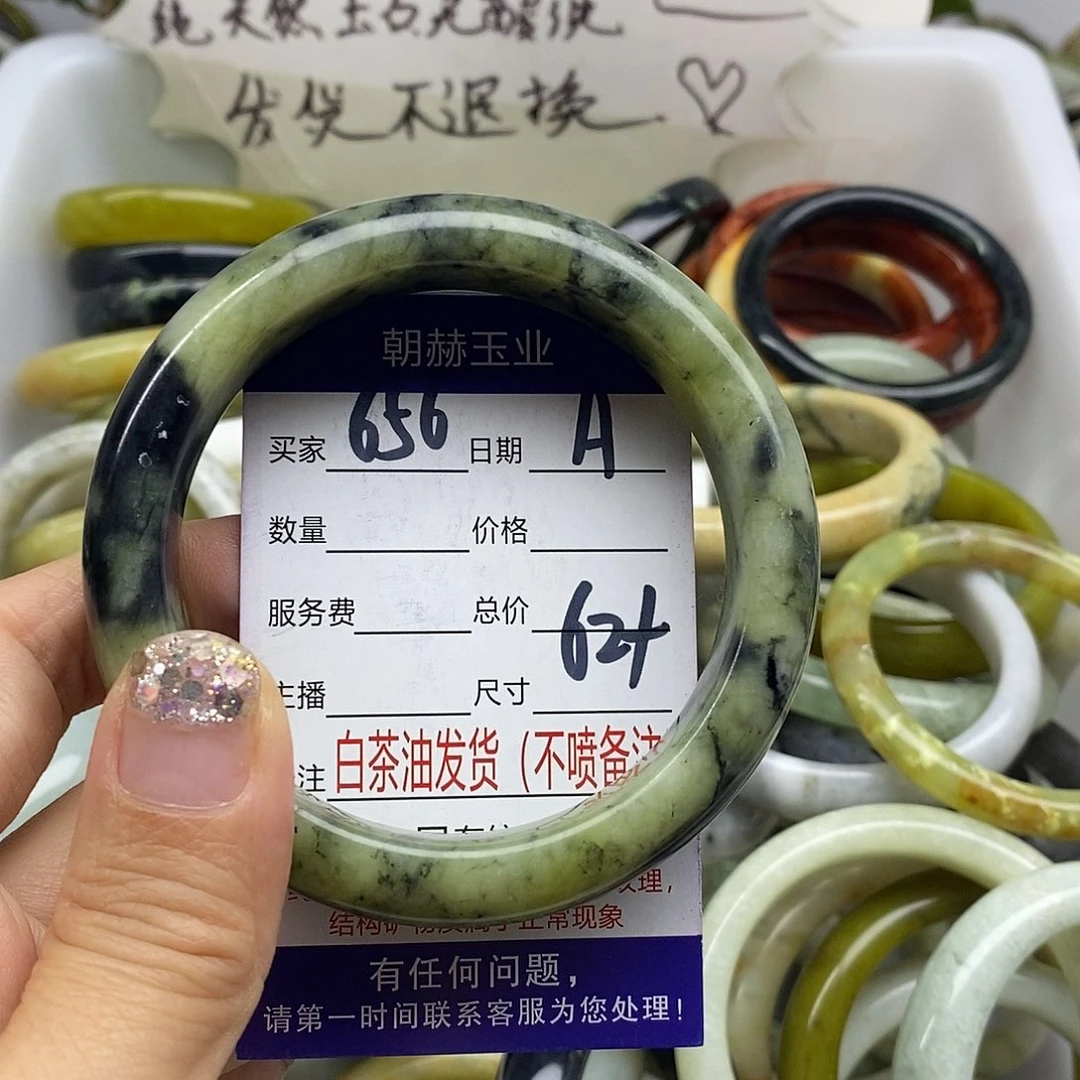 纯天然玉石无酸洗
发货不退换
朝赫玉业
买家 656 日期 A
数量 价格
服务费 总价
主播 尺寸 62+
注 白茶油发货（不喷备注
纹理，
结构矿物质属于正常现象
有任何问题，
请第一时间联系客服为您处理！